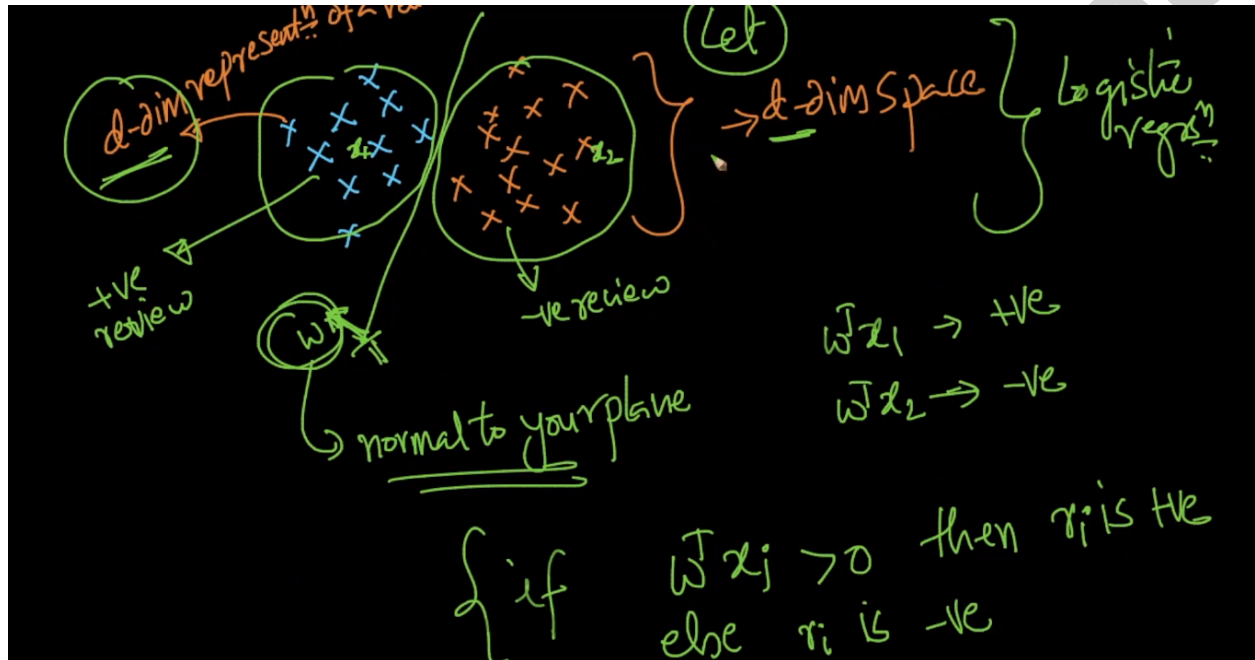 d-dim represent<sup>n</sup> of a
Let
→ d-dim Space
Logistic
regrs<sup>n</sup>
x₁
x₂
+ve
review
-ve review
w
normal to your plane
wᵀx₁ → +ve
wᵀx₂ → -ve
if wᵀxᵢ > 0 then rᵢ is +ve
else rᵢ is -ve